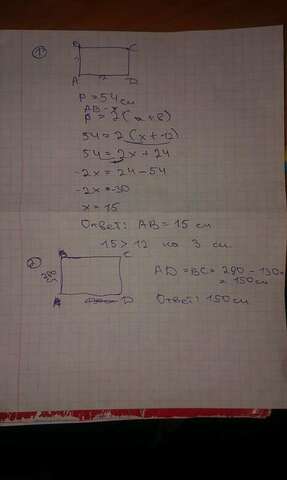 B C
A D
P = 54 см
AB - x
P = 2(a+b)
54 = 2(x+12)
54 = 2x + 24
-2x = 24 - 54
-2x = -30
x = 15
Ответ: AB = 15 см
15 > 12 на 3 см.
B C
A D
AD = BC = 290 - 130 =
= 150 см
Ответ: 150 см